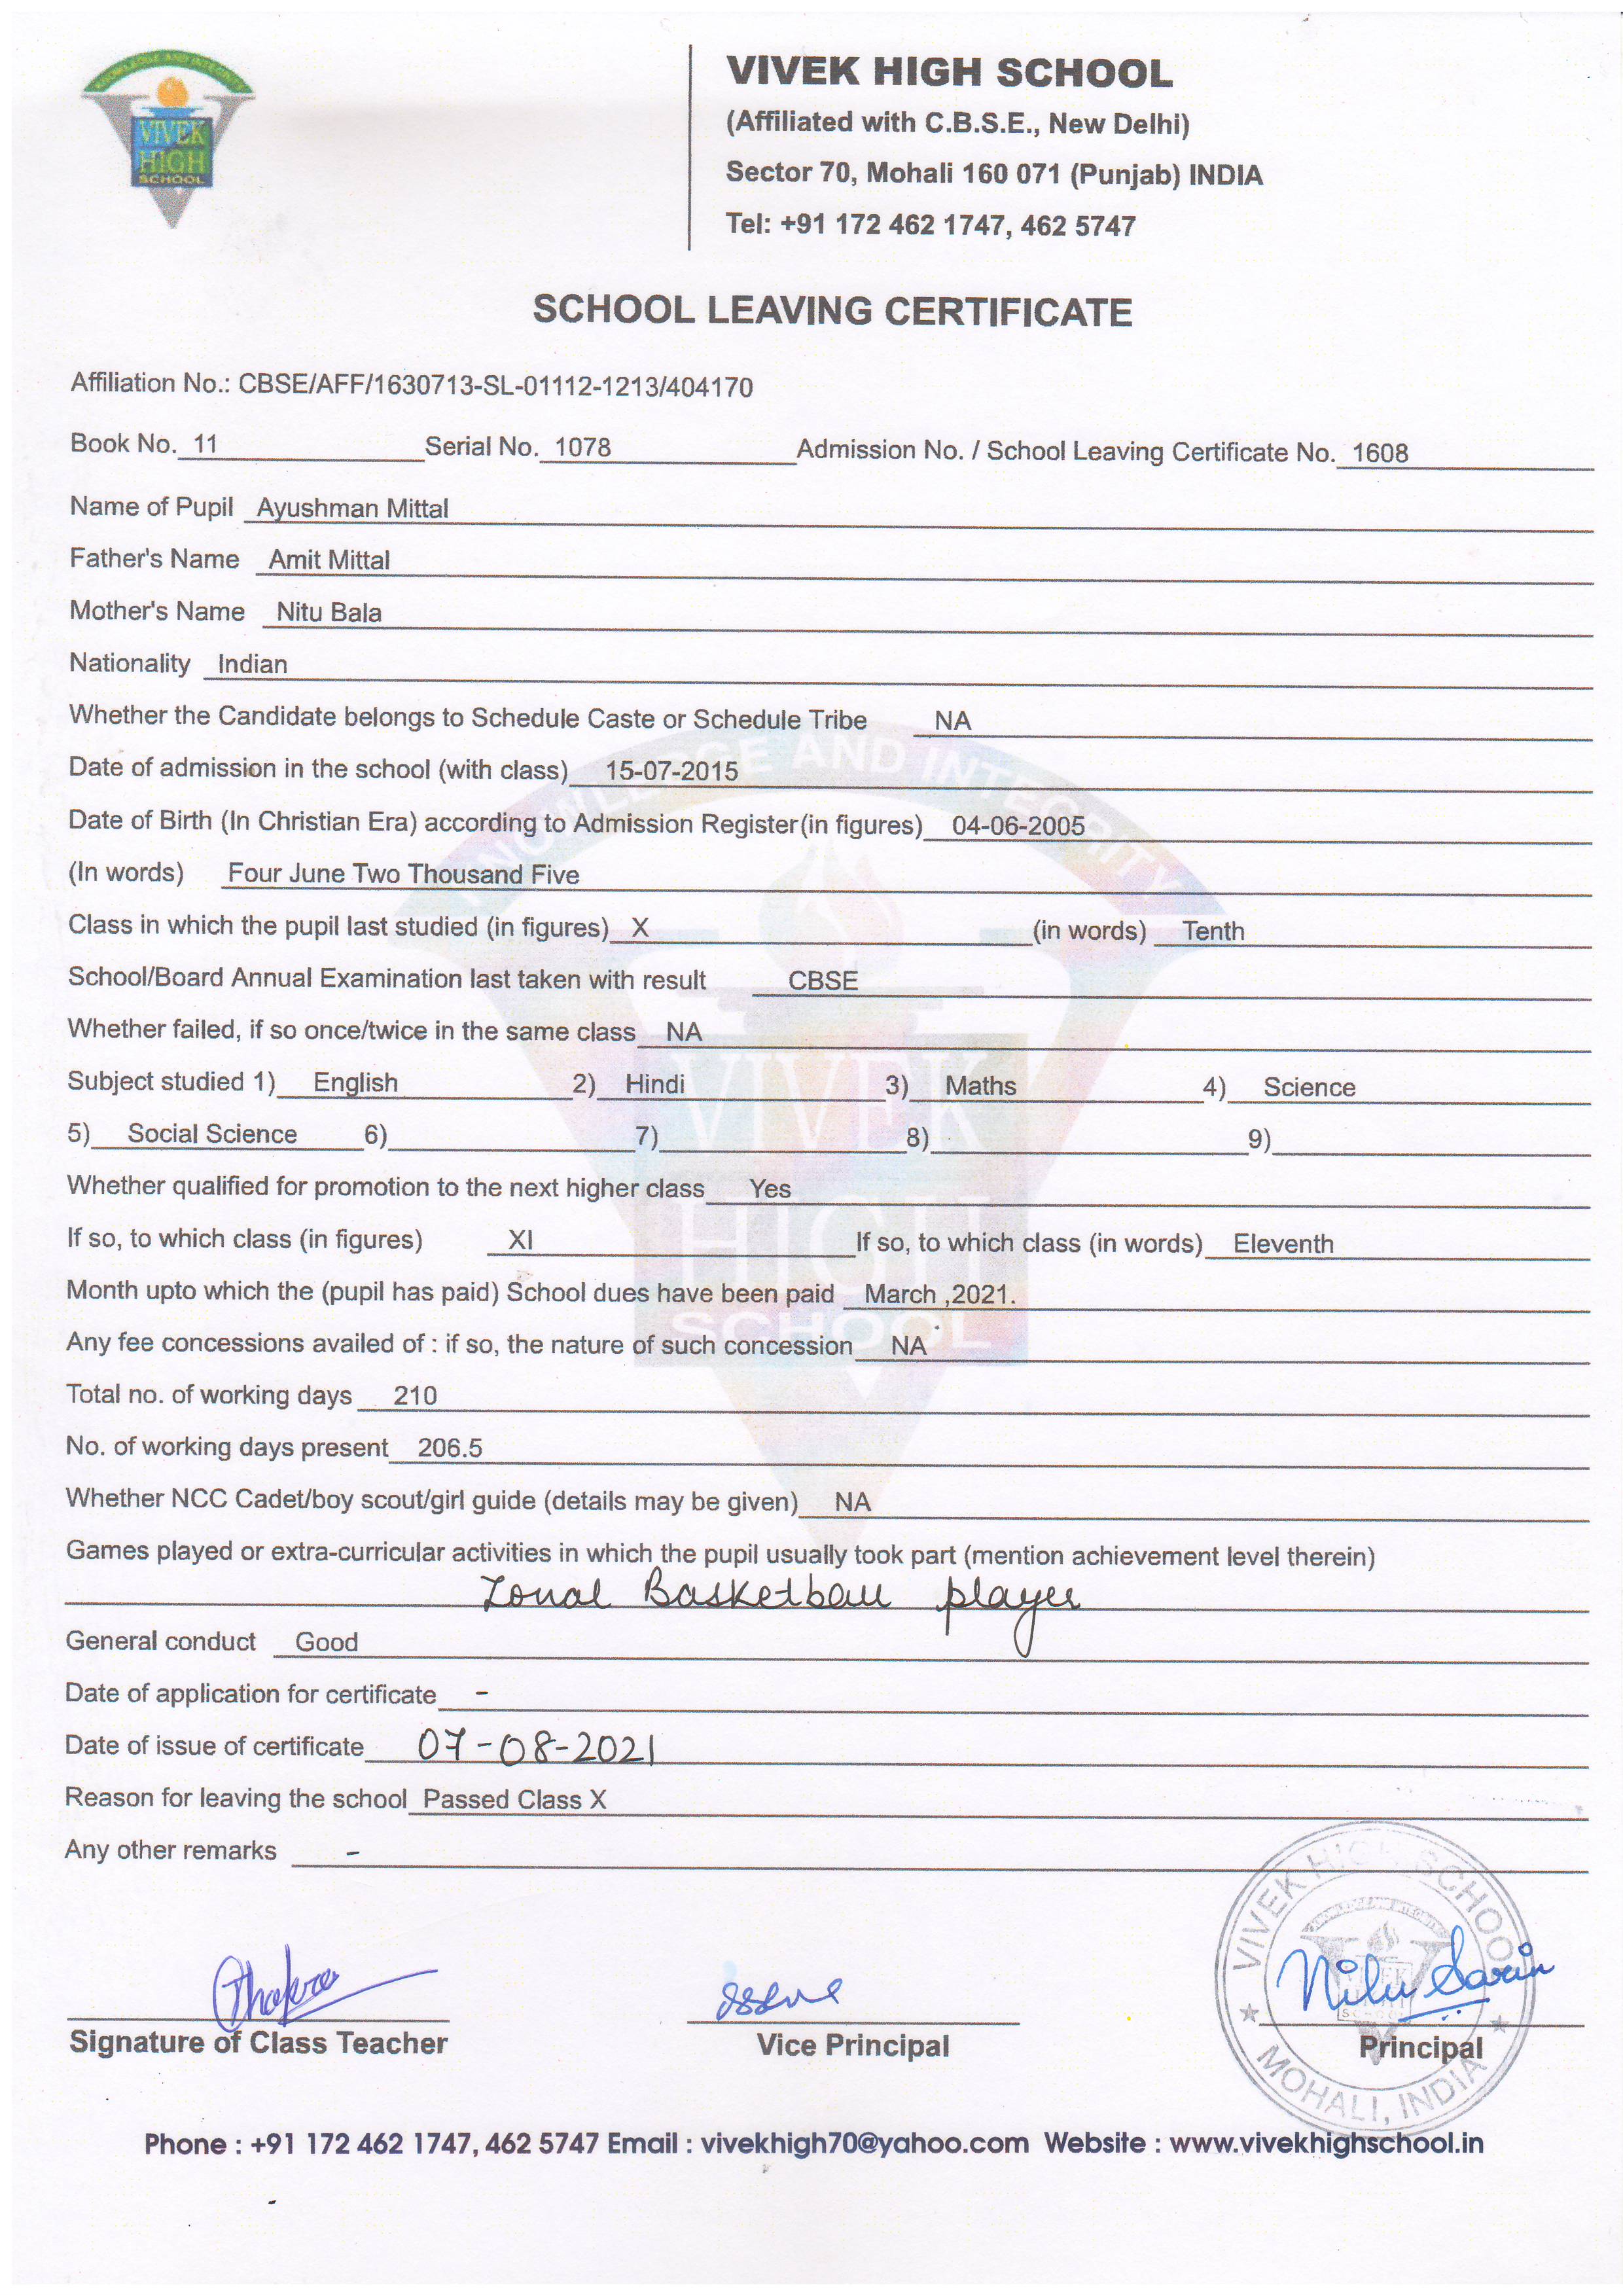 KNOWLEDGE AND INTEGRITY
VIVEK
HIGH
SCHOOL
VIVEK HIGH SCHOOL
(Affiliated with C.B.S.E., New Delhi)
Sector 70, Mohali 160 071 (Punjab) INDIA
Tel: +91 172 462 1747, 462 5747
SCHOOL LEAVING CERTIFICATE
Affiliation No.: CBSE/AFF/1630713-SL-01112-1213/404170
Book No. 11 Serial No. 1078 Admission No. / School Leaving Certificate No. 1608
Name of Pupil Ayushman Mittal
Father's Name Amit Mittal
Mother's Name Nitu Bala
Nationality Indian
Whether the Candidate belongs to Schedule Caste or Schedule Tribe NA
Date of admission in the school (with class) 15-07-2015
Date of Birth (In Christian Era) according to Admission Register(in figures) 04-06-2005
(In words) Four June Two Thousand Five
Class in which the pupil last studied (in figures) X (in words) Tenth
School/Board Annual Examination last taken with result CBSE
Whether failed, if so once/twice in the same class NA
Subject studied 1) English 2) Hindi 3) Maths 4) Science
5) Social Science 6) 7) 8) 9)
Whether qualified for promotion to the next higher class Yes
If so, to which class (in figures) XI If so, to which class (in words) Eleventh
Month upto which the (pupil has paid) School dues have been paid March ,2021.
Any fee concessions availed of : if so, the nature of such concession NA
Total no. of working days 210
No. of working days present 206.5
Whether NCC Cadet/boy scout/girl guide (details may be given) NA
Games played or extra-curricular activities in which the pupil usually took part (mention achievement level therein)
Zonal Basketball player
General conduct Good
Date of application for certificate -
Date of issue of certificate 07-08-2021
Reason for leaving the school Passed Class X
Any other remarks -
VIVEK HIGH SCHOOL
MOHALI, INDIA
Nilu Sarin
Signature of Class Teacher Vice Principal Principal
Phone : +91 172 462 1747, 462 5747 Email : vivekhigh70@yahoo.com Website : www.vivekhighschool.in